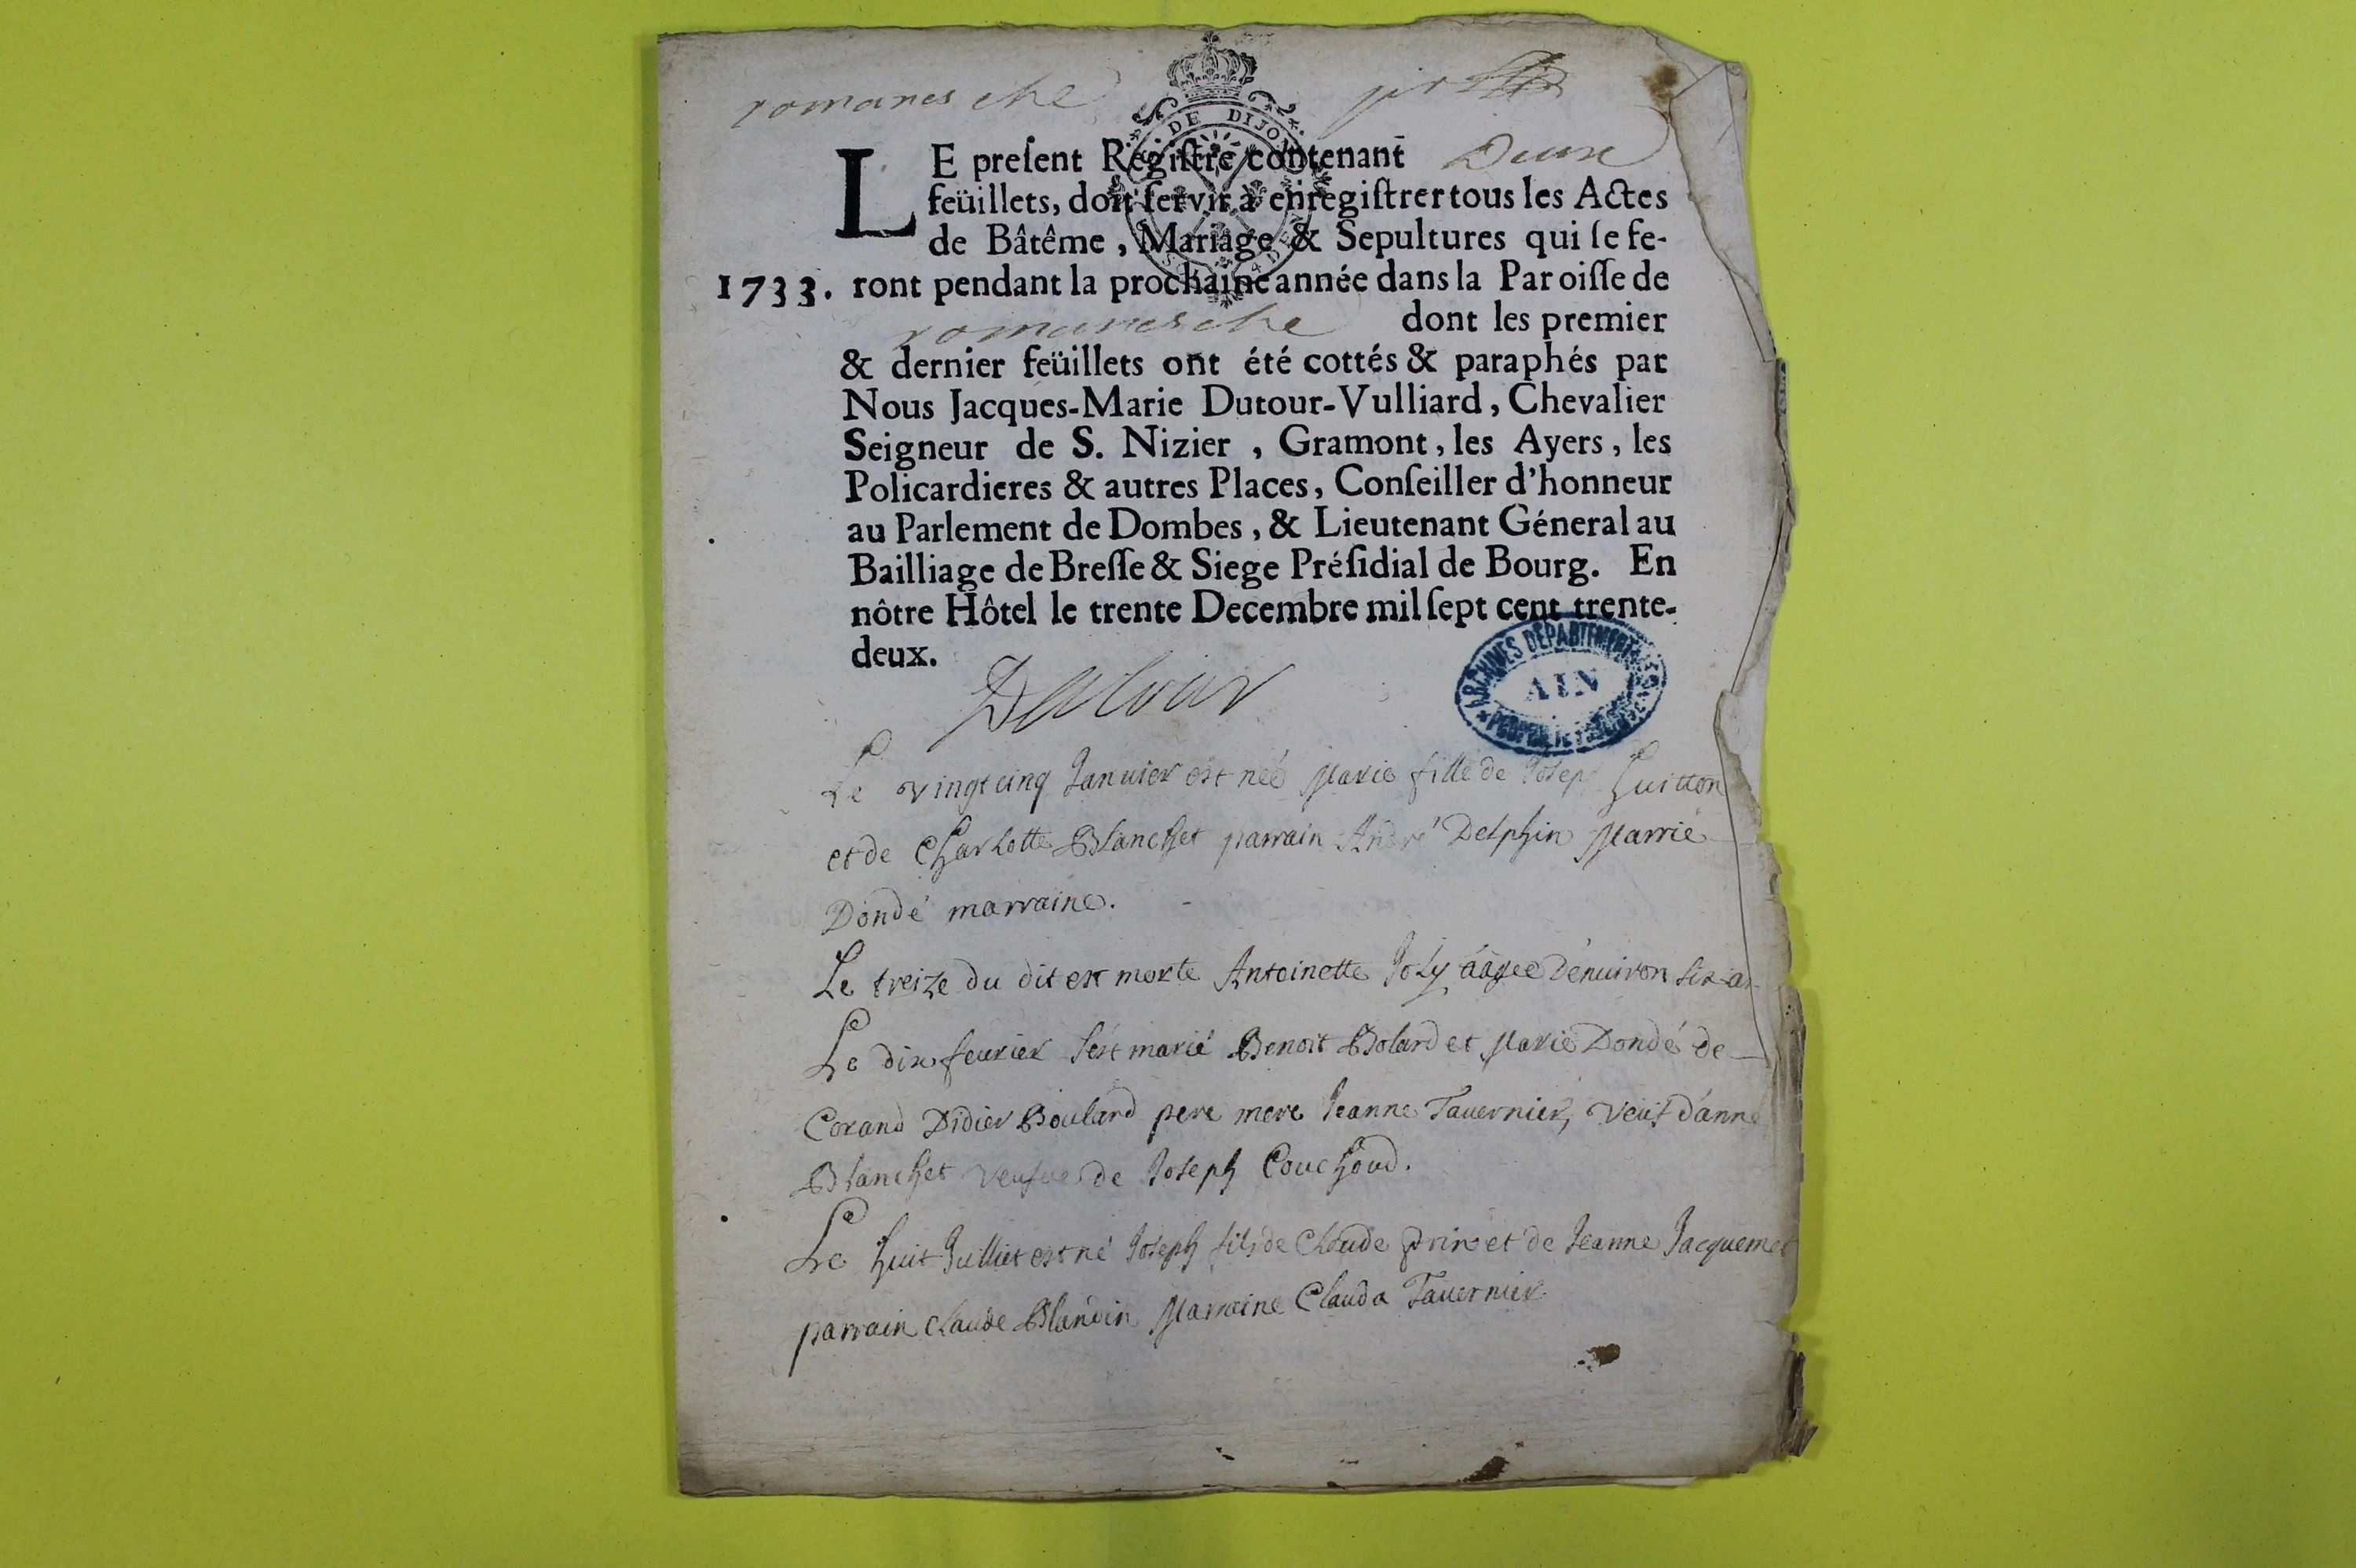 romanesche
DE DIJON
LE preſent Regiſtre contenant Deux
feüillets, doit ſervir à enregiſtrer tous les Actes
de Bâtême, Mariage & Sepultures qui ſe fe-
1733. ront pendant la prochaine année dans la Paroiſſe de
romanesche dont les premier
& dernier feüillets ont été cottés & paraphés par
Nous Jacques-Marie Dutour-Vulliard, Chevalier
Seigneur de S. Nizier, Gramont, les Ayers, les
Policardieres & autres Places, Conſeiller d'honneur
au Parlement de Dombes, & Lieutenant Géneral au
Bailliage de Breſſe & Siege Préſidial de Bourg. En
nôtre Hôtel le trente Decembre mil ſept cent trente-
deux.
ARCHIVES DEPARTEMENTALES
AIN
Dutour
Le vingt cinq Januier est neé Marie fille de Joseph Guitton
et de Charlotte Blanchet parrain André Delphin Marrie
Dondé marraine.
Le treize du dit est morte Antoinette Joly ââgeé d'enuiron six an
Le dix feurier s'est marié Benoit Bolard et Marie Dondé de
Corand Didier Boulard pere mere Jeanne Tauernier, veuf d'anne
Blanchet veufue de Joseph Couchoud.
Le huit Julliet est né Joseph fils de Claude prin et de Jeanne Jacquemet
parrain claude Blandin Marraine Clauda Tauernier